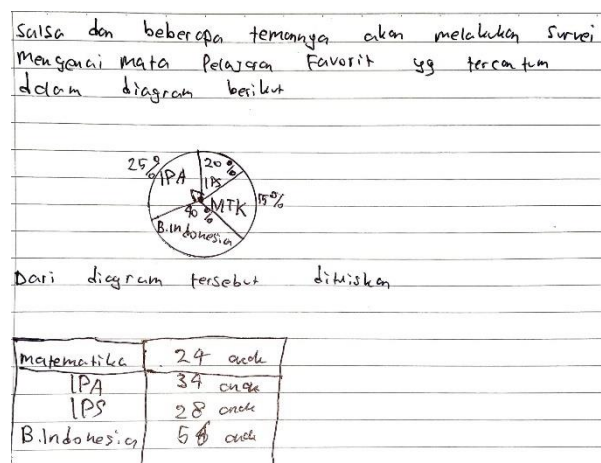 Salsa dan beberapa temannya akan melakukan survei
mengenai mata Pelajaran Favorit yg tercantum
dalam diagram berikut
25%
20%
IPA
IPS
MTK
15%
40%
B.Indonesia
Dari diagram tersebut dituiskan
matematika 24 anak
IPA 34 anak
IPS 28 anak
B.Indonesia 56 anak